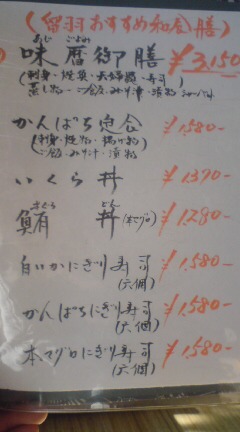 (留羽おすすめ和食膳)
あじ ごよみ
味暦御膳 ¥3,150
(刺身・焼魚・天婦羅・寿司
蒸し物・ご飯・みそ汁・漬物 シャーベット)
かんぱち定食 ¥1,580-
(刺身・焼き物・揚げ物
ご飯・みそ汁・漬物)
いくら丼 ¥1,370-
まぐろ どん
鮪 丼(本マグロ) ¥1,280-
白いかにぎり寿司 ¥1,580-
(六個)
かんぱちにぎり寿司 ¥1,580-
(六個)
本マグロにぎり寿司 ¥1,580-
(六個)